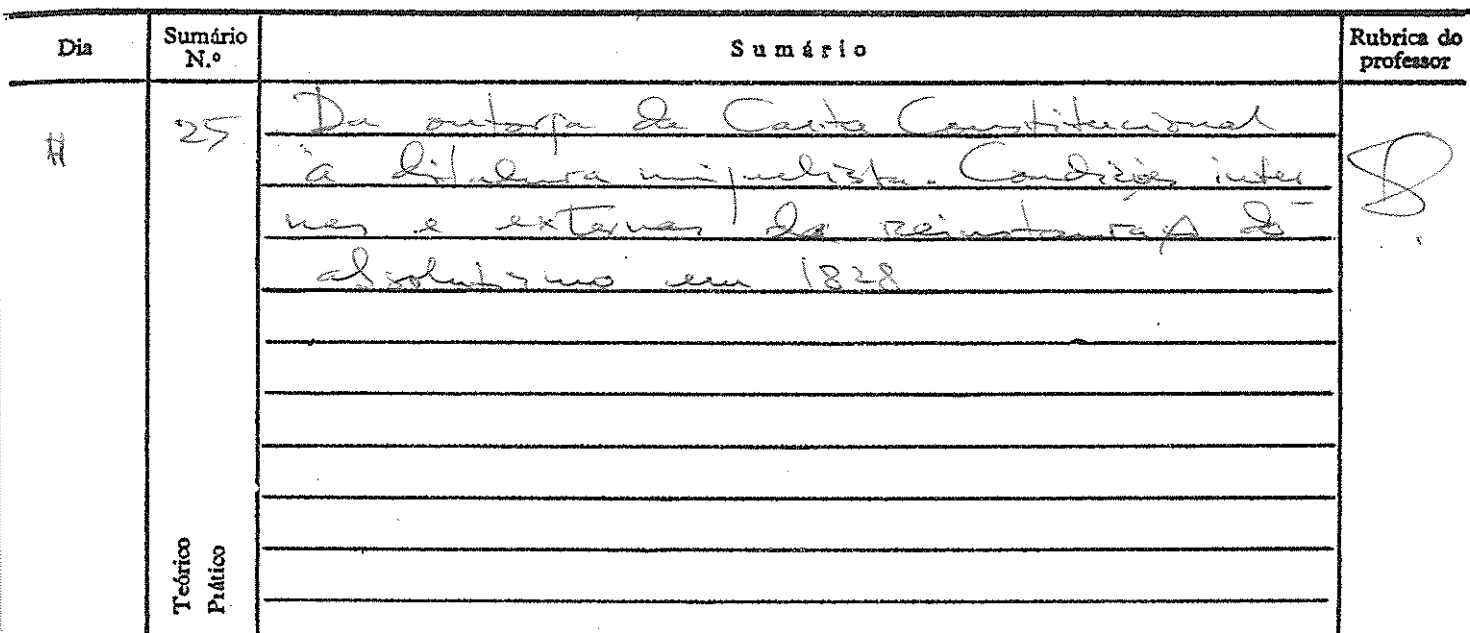 Dia Sumário N.º Sumário Rubrica do professor
25 Da outorga da Carta Constitucional
à ditadura miguelista. Condições inter
nas e externas da reinstauração do
absolutismo em 1828
Teórico
Prático